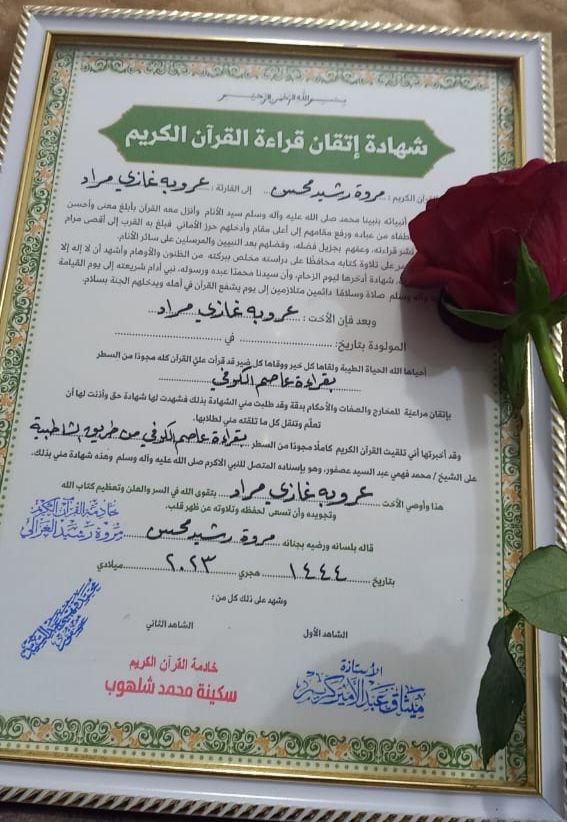 بسم الله الرحمن الرحيم
شهادة إتقان قراءة القرآن الكريم
القرآن الكريم : مروة رشيد محسن إلى القارئة : عروبه غازي مراد
أنبيائه بنبينا محمد صلى الله عليه وآله وسلم سيد الأنام وأنزل معه القرآن بأبلغ معنى وأحسن
من عباده ورفع مقامهم إلى أعلى مقام وأدخلهم حرز الأماني فبلغ به القرب إلى أقصى مرام
نشر قراءته، وعمهم بجزيل فضله، وفضلهم بعد النبيين والمرسلين على سائر الأنام.
على تلاوة كتابه محافظًا على دراسته مخلص ببركته من الظنون والأوهام وأشهد أن لا إله إلا
شهادة أدخرها ليوم الزحام، وأن سيدنا محمدًا عبده ورسوله، نبي أدام شريعته إلى يوم القيامة
وآله وسلم صلاة وسلامًا دائمين متلازمين إلى يوم يشفع القرآن في أهله ويدخلهم الجنة بسلام.
وبعد فإن الأخت : عروبه غازي مراد
المولودة بتاريخ: في
أحياها الله الحياة الطيبة ولقاها كل خير ووقاها كل ضير قد قرأت عليّ القرآن كله مجودًا من السطر
بقراءة عاصم الكوفي
بإتقان مراعيَة للمخارج والصفات والأحكام بدقة وقد طلبت مني الشهادة بذلك فشهدت لها شهادة حق وأذنت لها أن
تعلّم وتنقل كل ما تلقته مني لطلابها.
وقد أخبرتها أني تلقيت القرآن الكريم كاملًا مجودًا من السطر بقراءة عاصم الكوفي من طريق الشاطبية
على الشيخ / محمد فهمي عبد السيد عصفور، وهو بإسناده المتصل للنبي الاكرم صلى الله عليه وآله وسلم وهذه شهادة مني بذلك.
هذا وأوصي الأخت عروبه غازي مراد بتقوى الله في السر والعلن وتعظيم كتاب الله
وتجويده وأن تسعى لحفظه وتلاوته عن ظهر قلب.
خادمة القرآن الكريم
مروة رشيد الغزالي
قاله بلسانه ورضيه بجنانه مروة رشيد محسن
بتاريخ ١٤٤٤ هجري ٢٠٢٣ ميلادي
وشهد على ذلك كل من :
الشاهد الأول
الشاهد الثاني
الأستاذة
ميثاق عبد الأمير كريم
خادمة القرآن الكريم
سكينة محمد شلهوب